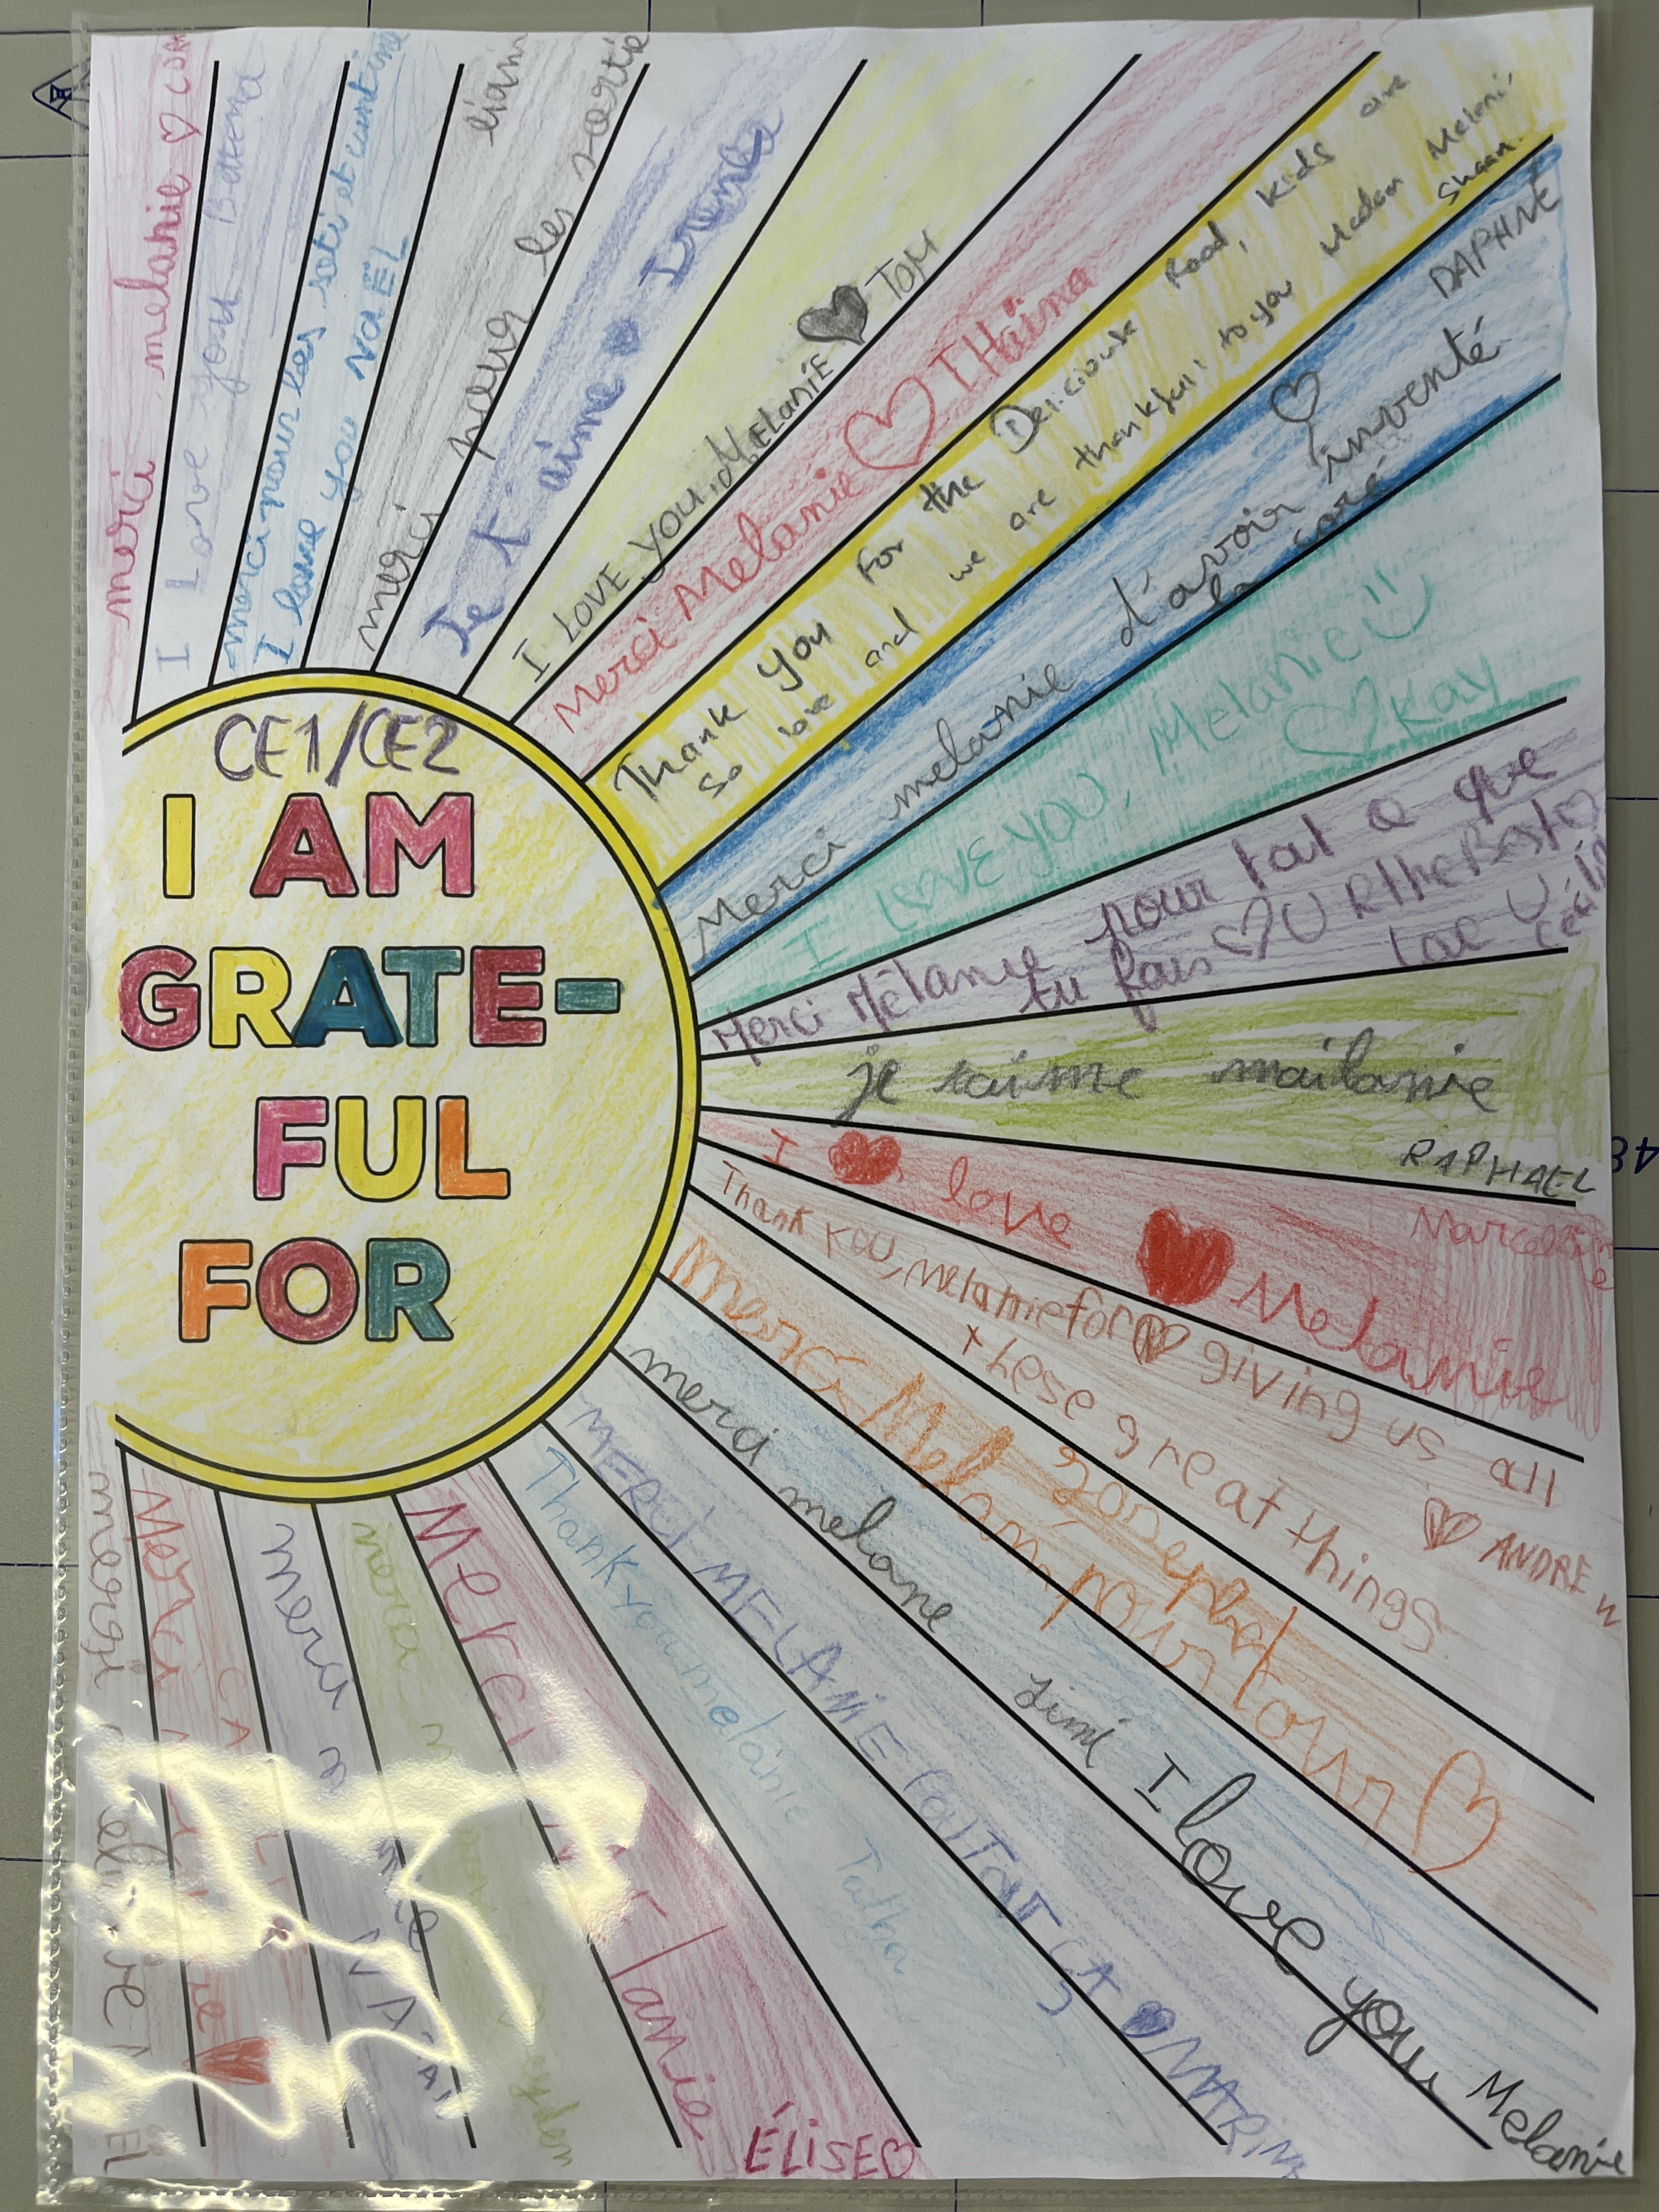 CE1/CE2
I AM
GRATE-
FUL
FOR
merci melanie ♡
I Love you Battena
merci pour les soti et cuntine
I lome you NaËL
liam
merci pour les sortie
Je t'aime Irenka
I LOVE YOU, MELANIE ♥ TOM
Merci Melanie ♡ THaina
Thank you for the Deliciouse food, kids are
so love and we are thankfull to you Madam Melani-
Shaan.
DAPHNE
Merci melanie d'avoir inventé
la soré
I LOVE YOU, Melanie
♡ KAY
Merci Mélanie pour tout a que
tu fais ♡ U R the Best ♡
Loe U
je taime mailanie
RAPHAEL
I ♥ love ♥ Melanie
Marceline
Thank you, melanie for ♡ giving us all
these great things
♡ ANDREW
Merci Melani pour tour ♡
merci melanie Jimi I love you Melanie
MERCI MELANIE POUTOUT ÇA ♥ MARINA
Thank you melanie Tatha
Merci Melanie
ÉLISE♡
merci
jayden
merci
Merci
♥
meggi